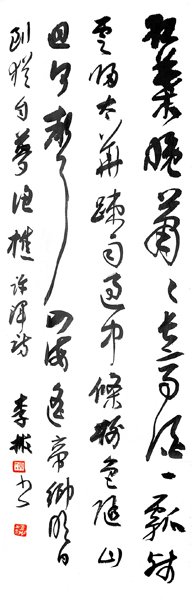 紅葉晚蕭々長亭酒一瓢殘
雲歸太華疎雨過中條樹色隨山
迥河聲入海遙帝鄉明日
到猶自夢漁樵 許渾詩 李彬书